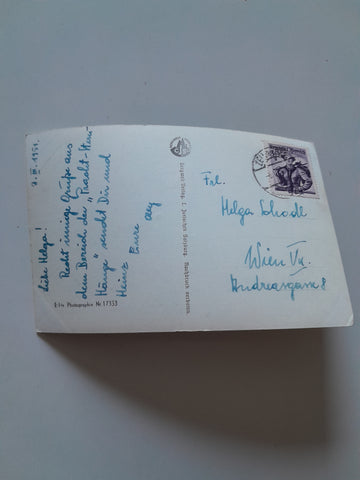 7. III. 1951.
Liebe Helga!
Recht innige Grüße aus
dem Bereich der "Pracht-
Hänge" sendet Dir und
Heinz Eure
Echte Photographie Nr. 17553
Cosmos Verlag, Salzburg. Nachdruck verboten.
Frl.
Helga Schodl
Wien VII.
Andreasgasse 8